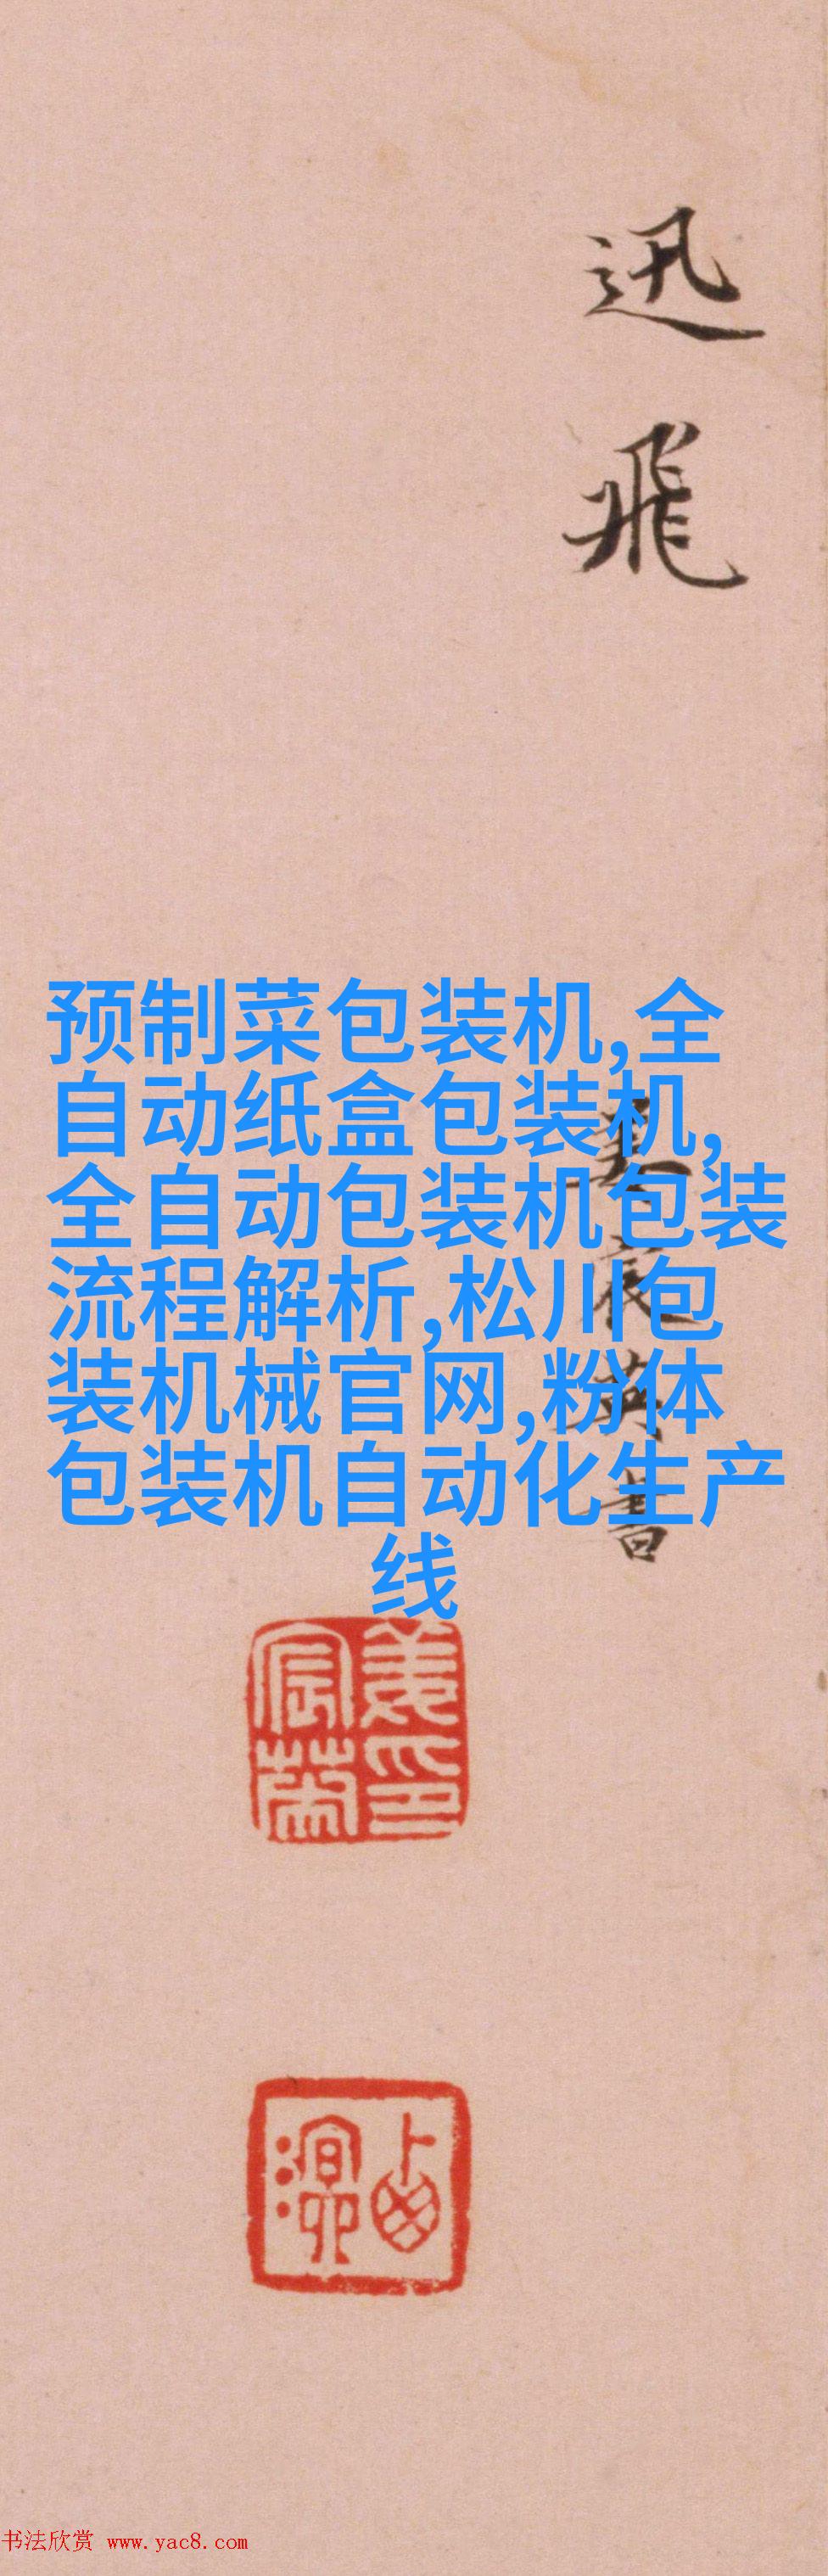 迅飛
预制菜包装机,全
自动纸盒包装机,
全自动包装机包装
流程解析,松川包
装机械官网,粉体
包装机自动化生产
线
书法欣赏 www.yac8.com